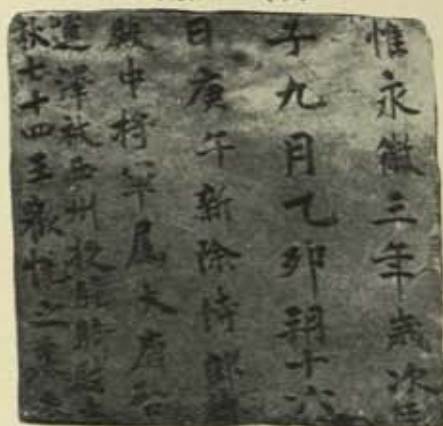 惟永徽三年歲次壬
子九月乙卯朔十六
日庚午新除侍郎
殿中將軍屬大唐
運澤被西州授驍騎尉春
秋七十四王歡悅之墓